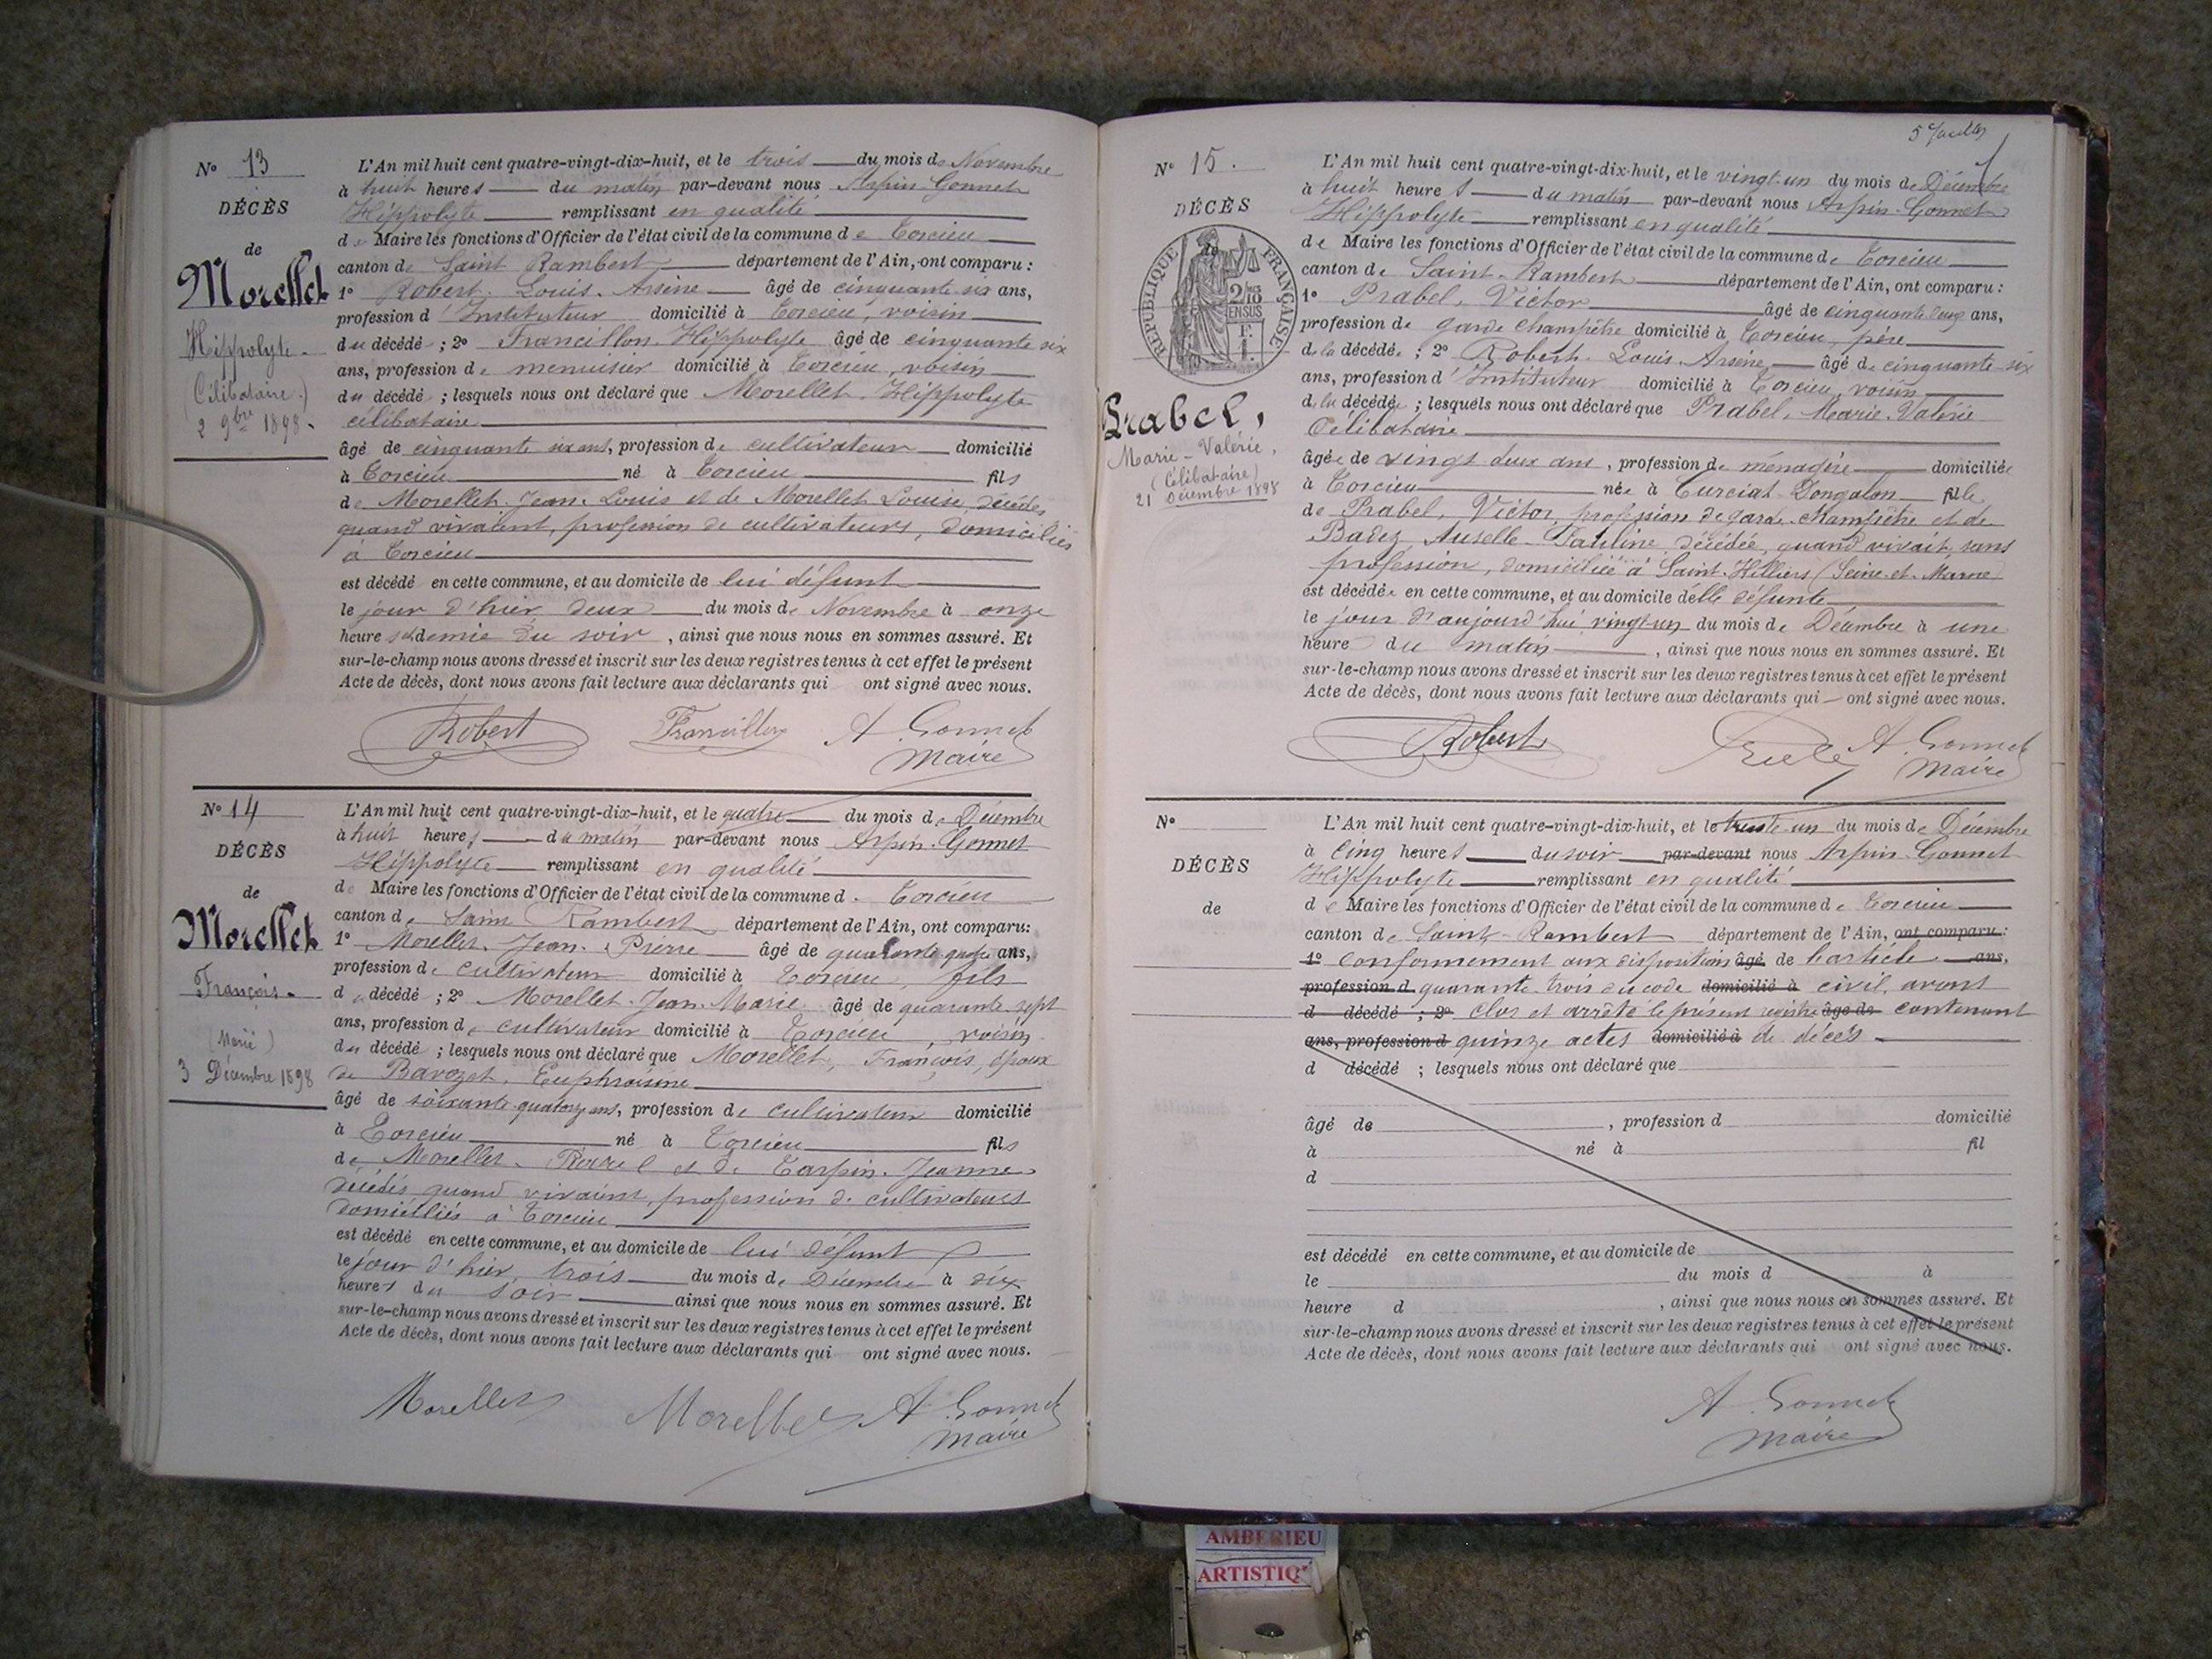 N° 13
DÉCÈS
de
Morellet
Hippolyte
(Célibataire)
2 9bre 1898
L'An mil huit cent quatre-vingt-dix-huit, et le trois du mois de Novembre
à huit heures du matin par-devant nous Arpin-Gonnet
Hippolyte remplissant en qualité
de Maire les fonctions d'Officier de l'état civil de la commune de Torcieu
canton de Saint Rambert département de l'Ain, ont comparu :
1° Robert Louis Arsène âgé de cinquante six ans,
profession d'Instituteur domicilié à Torcieu, voisin
du décédé ; 2° Francillon Hippolyte âgé de cinquante six
ans, profession de menuisier domicilié à Torcieu, voisin
du décédé ; lesquels nous ont déclaré que Morellet, Hippolyte
célibataire
âgé de cinquante six ans, profession de cultivateur domicilié
à Torcieu né à Torcieu fils
de Morellet Jean-Louis et de Morellet Louise, décédés
quand vivaient, profession de cultivateurs, domiciliés
à Torcieu
est décédé en cette commune, et au domicile de lui défunt
le jour d'hier deux du mois de Novembre à onze
heures et demie du soir, ainsi que nous nous en sommes assuré. Et
sur-le-champ nous avons dressé et inscrit sur les deux registres tenus à cet effet le présent
Acte de décès, dont nous avons fait lecture aux déclarants qui ont signé avec nous.
Robert Francillon A. Gonnet
Maire
N° 14
DÉCÈS
de
Morellet
François
(Marié)
3 Décembre 1898
L'An mil huit cent quatre-vingt-dix-huit, et le quatre du mois de Décembre
à huit heures du matin par-devant nous Arpin-Gonnet
Hippolyte remplissant en qualité
de Maire les fonctions d'Officier de l'état civil de la commune d. Torcieu
canton de Saint Rambert département de l'Ain, ont comparu:
1° Morellet Jean-Pierre âgé de quarante quatre ans,
profession de cultivateur domicilié à Torcieu, fils
du décédé ; 2° Morellet Jean-Marie âgé de quarante-sept
ans, profession de cultivateur domicilié à Torcieu, voisin
du décédé ; lesquels nous ont déclaré que Morellet, François, époux
de Barozet, Euphroisine
âgé de soixante-quatorze ans, profession de cultivateur domicilié
à Torcieu né à Torcieu fils
de Morellet et de Tarpin Jeanne
décédés quand vivaient, profession de cultivateurs
domiciliés à Torcieu
est décédé en cette commune, et au domicile de lui défunt
le jour d'hier trois du mois de Décembre à dix
heures du soir ainsi que nous nous en sommes assuré. Et
sur-le-champ nous avons dressé et inscrit sur les deux registres tenus à cet effet le présent
Acte de décès, dont nous avons fait lecture aux déclarants qui ont signé avec nous.
Morellet Morellet A. Gonnet
Maire
N° 15.
DÉCÈS
de
RÉPUBLIQUE FRANÇAISE
2/10 EN SUS
Prabel,
Marie-Valérie,
(Célibataire)
21 Décembre 1898
L'An mil huit cent quatre-vingt-dix-huit, et le vingt-un du mois de Décembre
à huit heures du matin par-devant nous Arpin-Gonnet
Hippolyte remplissant en qualité
de Maire les fonctions d'Officier de l'état civil de la commune de Torcieu
canton de Saint-Rambert département de l'Ain, ont comparu :
1° Prabel, Victor âgé de cinquante deux ans,
profession de garde champêtre domicilié à Torcieu, père
de la décédée ; 2° Robert Louis Arsène âgé de cinquante-six
ans, profession d'Instituteur domicilié à Torcieu, voisin
de la décédée ; lesquels nous ont déclaré que Prabel, Marie Valérie
Célibataire
âgée de vingt deux ans, profession de ménagère domiciliée
à Torcieu née à Curciat-Dongalon fille
de Prabel, Victor, profession de garde-champêtre et de
Badez Pauline décédée, quand vivait, sans
profession, domiciliée à Saint-Hilliers (Seine-et-Marne)
est décédée en cette commune, et au domicile d'elle défunte
le jour d'aujourd'hui vingt-un du mois de Décembre à une
heure du matin, ainsi que nous nous en sommes assuré. Et
sur-le-champ nous avons dressé et inscrit sur les deux registres tenus à cet effet le présent
Acte de décès, dont nous avons fait lecture aux déclarants qui ont signé avec nous.
Robert A. Gonnet
Maire
N°
DÉCÈS
de
L'An mil huit cent quatre-vingt-dix-huit, et le trente-un du mois de Décembre
à cinq heures du soir par-devant nous Arpin-Gonnet
Hippolyte remplissant en qualité
de Maire les fonctions d'Officier de l'état civil de la commune de Torcieu
canton de Saint-Rambert département de l'Ain, ont comparu :
1° conformément aux dispositions âgé de l'article ans,
profession d quarante trois du code domicilié à civil, avons
d décédé ; 2° clos et arrêté le présent registre âgé de contenant
ans, profession d quinze actes domicilié à de décès
d décédé ; lesquels nous ont déclaré que
âgé de , profession d domicilié
à né à fil
d
est décédé en cette commune, et au domicile de
le du mois d à
heure d , ainsi que nous nous en sommes assuré. Et
sur-le-champ nous avons dressé et inscrit sur les deux registres tenus à cet effet le présent
Acte de décès, dont nous avons fait lecture aux déclarants qui ont signé avec nous.
A. Gonnet
Maire
AMBERIEU
ARTISTIQ